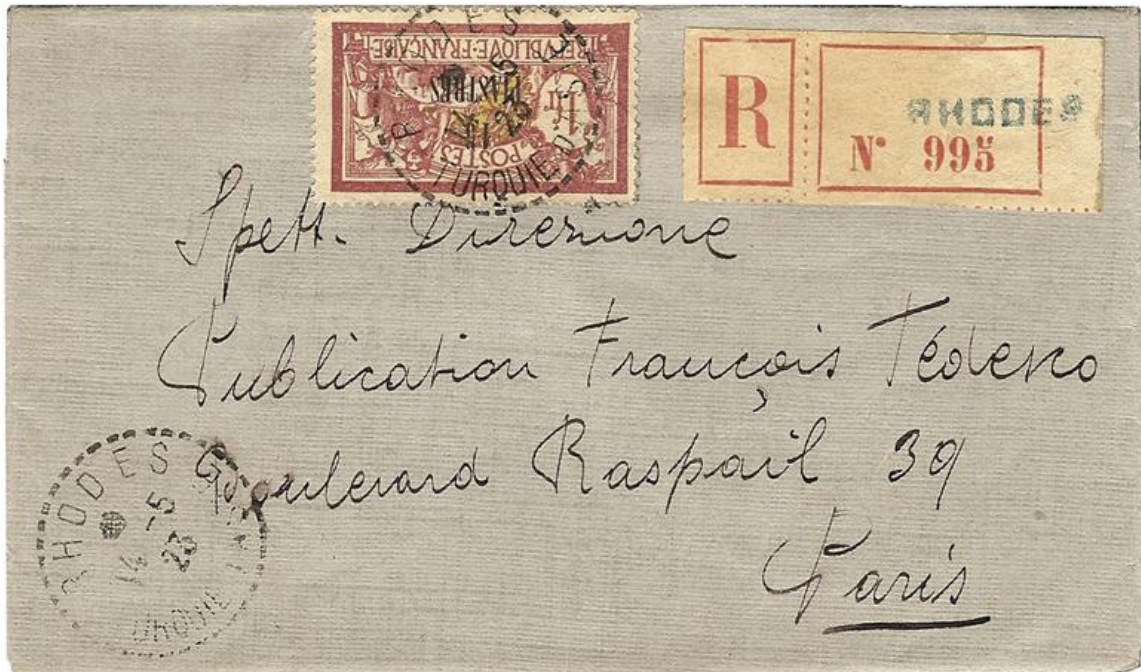 REPUBLIQUE·FRANÇAISE
PIASTRES
POSTES
1fr
RHODES
TURQUIE D'ASIE
R
RHODES
N° 995
Spett. Direzione
Publication François Tédesco
Boulevard Raspail 39
Paris
RHODES
14 -5
23